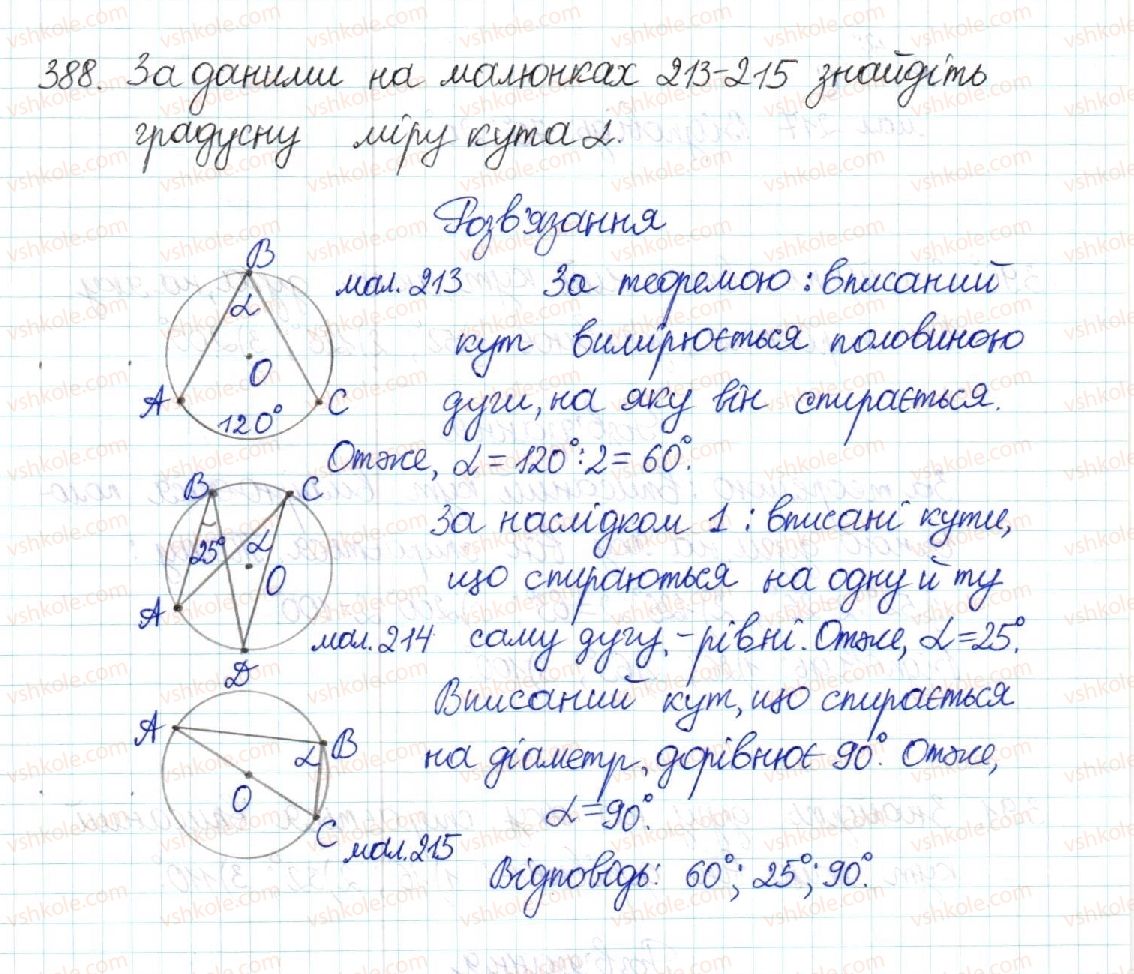 388. За даними на малюнках 213-215 знайдіть
градусну міру кута α.
Розв'язання
B
мал. 213
За теоремою: вписаний
α
кут вимірюється половиною
O
A
C
дуги, на яку він спирається.
120°
Отже, α = 120°:2 = 60°.
B
C
За наслідком 1: вписані кути,
25°
α
O
що спираються на одну й ту
A
мал. 214
саму дугу, - рівні. Отже, α = 25°.
D
Вписаний кут, що спирається
A
B
α
на діаметр, дорівнює 90°. Отже,
O
α = 90°.
C
мал. 215
Відповідь: 60°; 25°; 90°.
vshkole.com